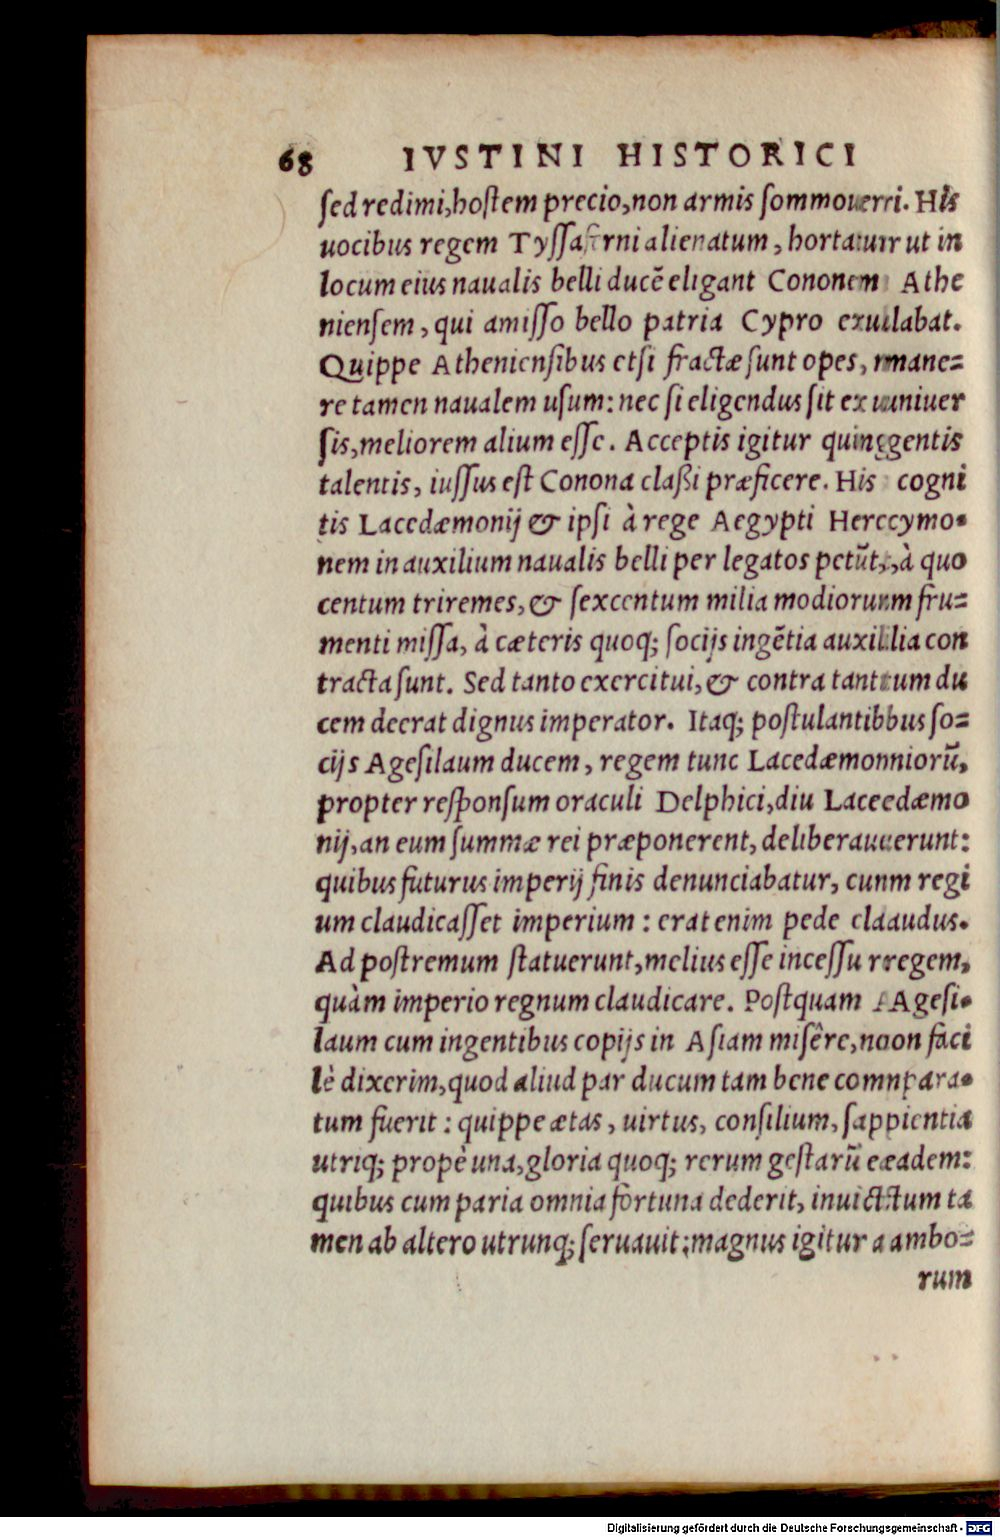 68 IVSTINI HISTORICI
ſed redimi, hoſtem precio, non armis ſommoueri. His
uocibus regem Tyſſaferni alienatum, hortatur ut in
locum eius naualis belli ducē eligant Cononem Athe
nienſem, qui amiſſo bello patria Cypro exulabat.
Quippe Athenienſibus etſi fractæ ſunt opes, mane=
re tamen naualem uſum: nec ſi eligendus ſit ex uniuer
ſis, meliorem alium eſſe. Acceptis igitur quingentis
talentis, iuſſus eſt Conona claßi præficere. His cogni
tis Lacedæmonij & ipſi à rege Aegypti Hercymo=
nem in auxilium naualis belli per legatos petūt, à quo
centum triremes, & ſexcentum milia modiorum fru=
menti miſſa, à cæteris quoq; ſocijs ingētia auxilia con
tracta ſunt. Sed tanto exercitui, & contra tantum du
cem deerat dignus imperator. Itaq; poſtulantibus ſo=
cijs Ageſilaum ducem, regem tunc Lacedæmoniorū,
propter reſponſum oraculi Delphici, diu Lacedæmo
nij, an eum ſummæ rei præponerent, deliberauerunt:
quibus futurus imperij finis denunciabatur, cum regi
um claudicaſſet imperium : erat enim pede claudus.
Ad poſtremum ſtatuerunt, melius eſſe inceſſu regem,
quàm imperio regnum claudicare. Poſtquam Ageſi=
laum cum ingentibus copijs in Aſiam miſêre, non faci
lè dixerim, quod aliud par ducum tam bene compara=
tum fuerit : quippe ætas, uirtus, conſilium, ſapientia
utriq; propè una, gloria quoq; rerum geſtarū eadem:
quibus cum paria omnia fortuna dederit, inuictum ta
men ab altero utrunq; ſeruauit; magnus igitur ambo=
rum
Digitalisierung gefördert durch die Deutsche Forschungsgemeinschaft - DFG